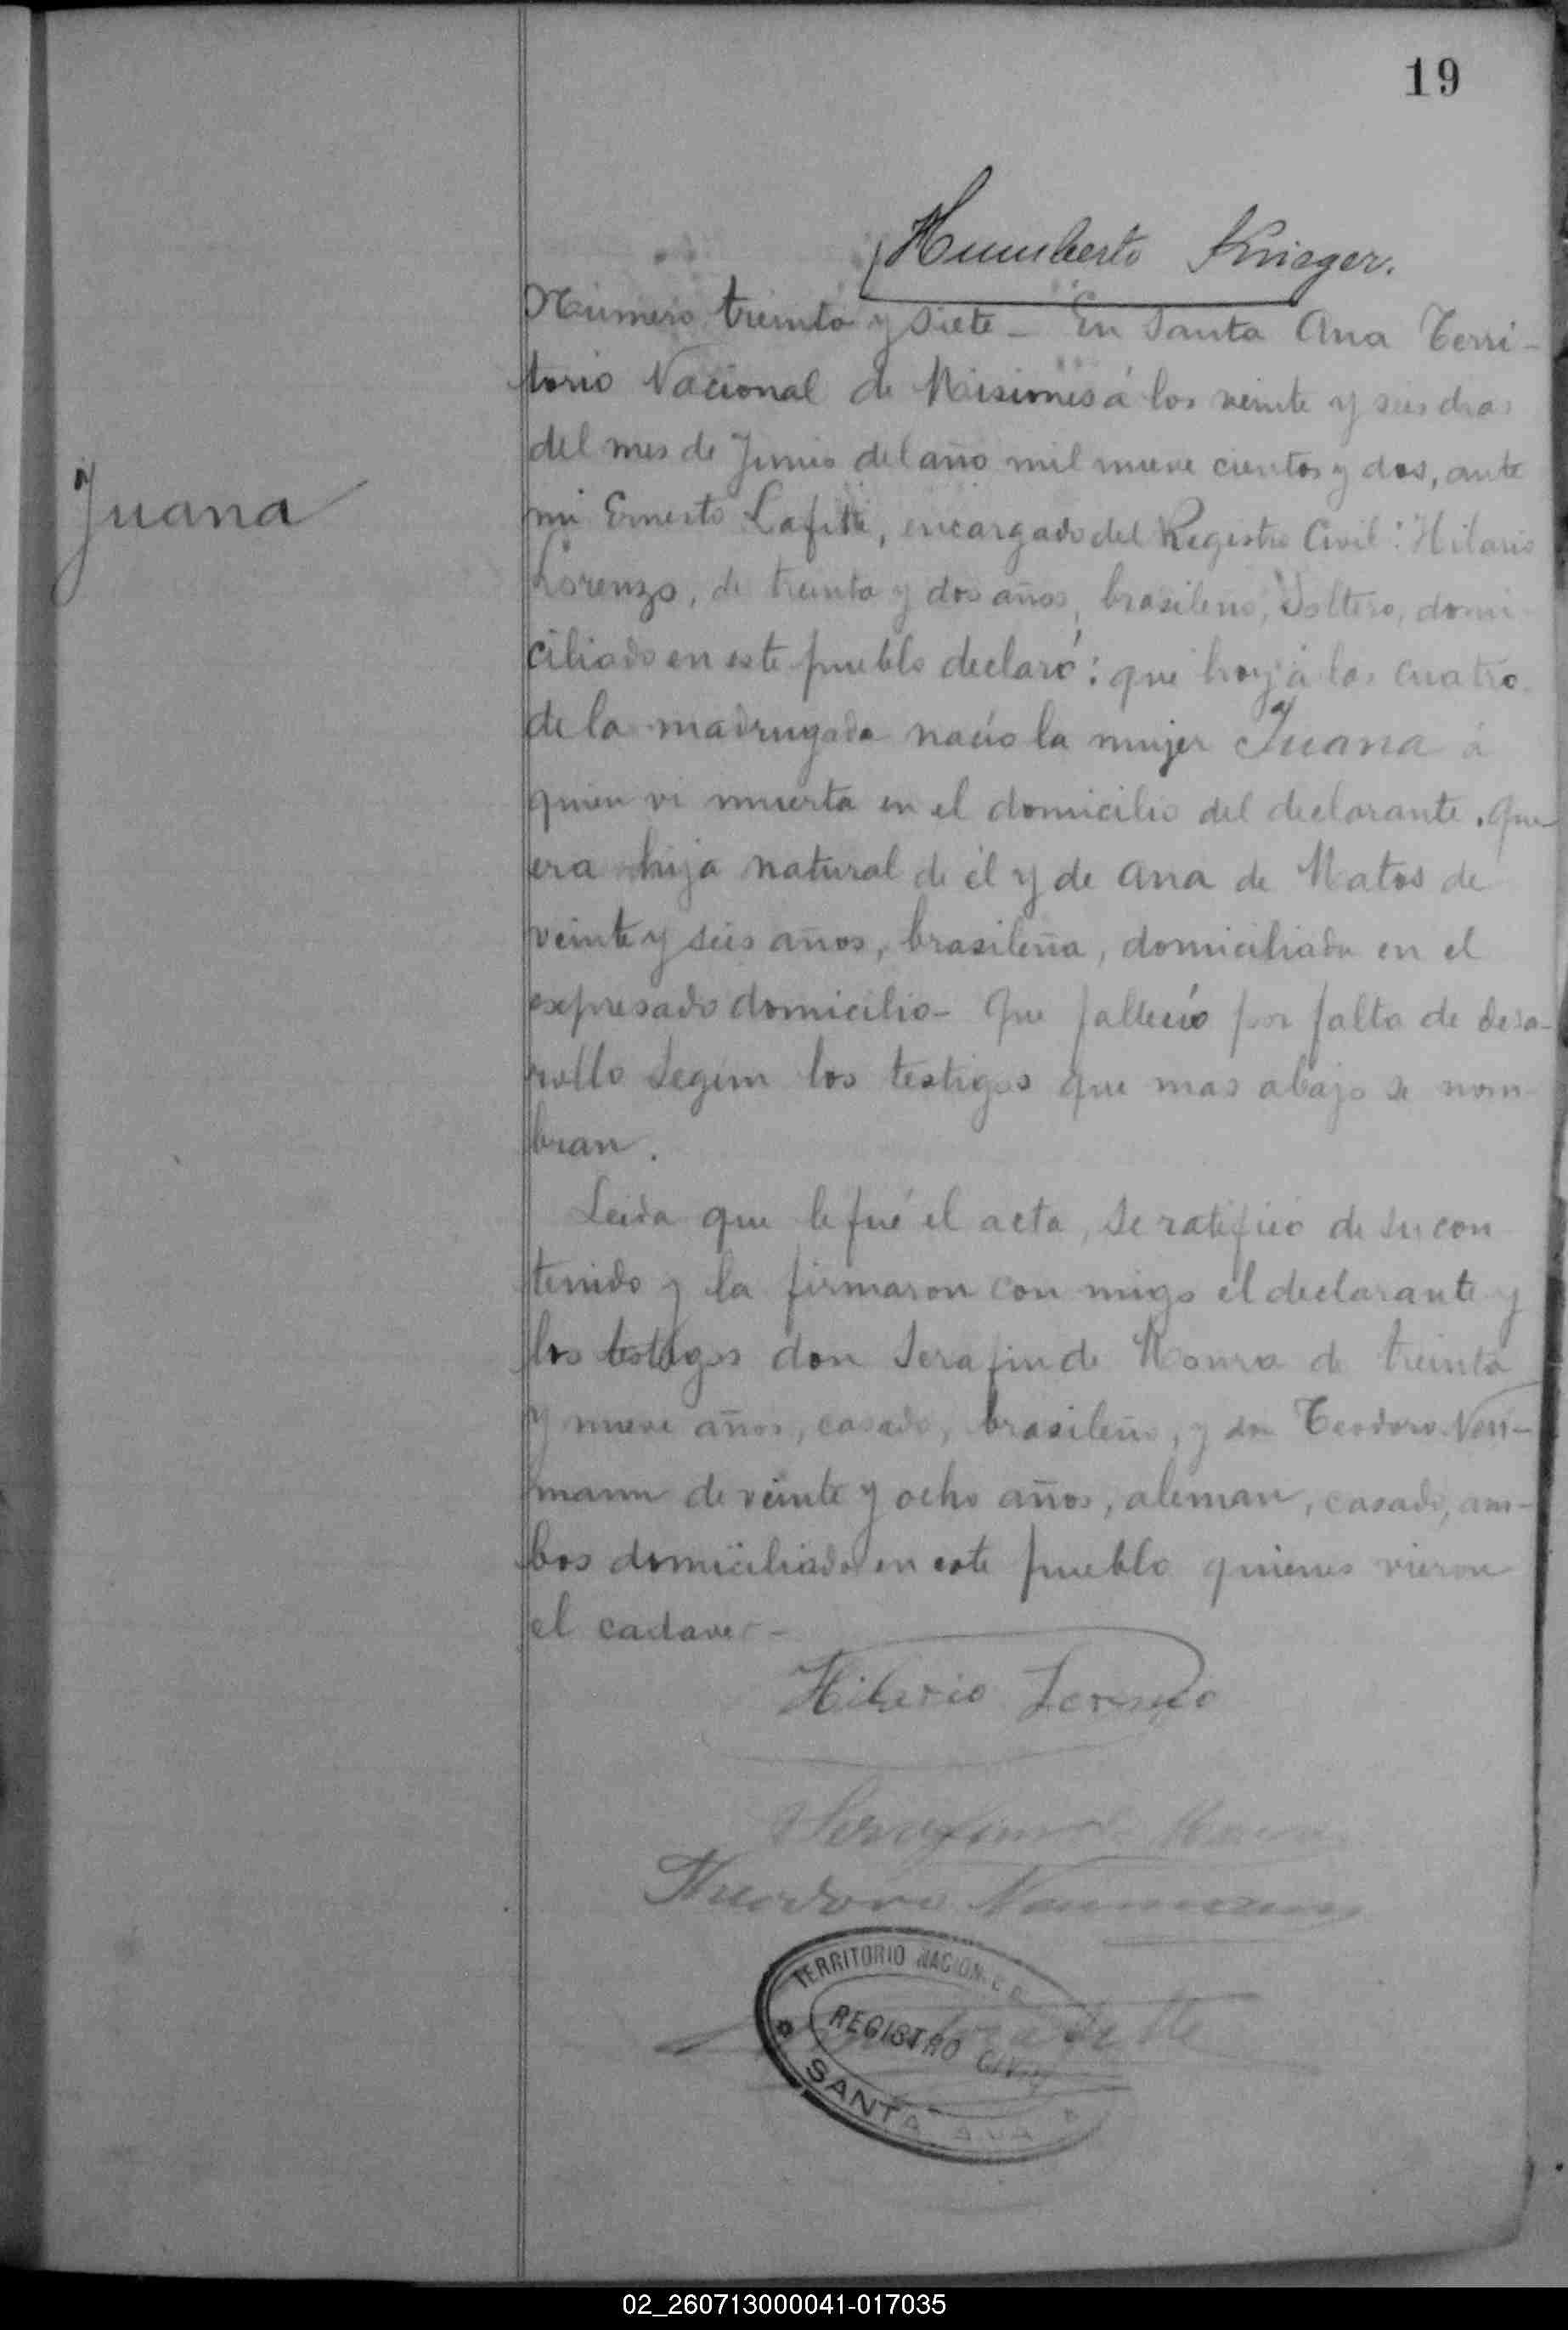 19
Humberto Krieger.
Número treinta y siete – En Santa Ana Terri-
torio Nacional de Misiones á los veinte y seis dias
del mes de Junio del año mil nueve cientos y dos, ante
Juana
mi Ernesto Lafitte, encargado del Registro Civil: Hilario
Lorenzo, de treinta y dos años, brasileño, Soltero, domi-
ciliado en este pueblo declaró: que hoy á las cuatro
de la madrugada nació la mujer Juana á
quien vi muerta en el domicilio del declarante. Que
era hija natural de él y de Ana de Matos de
veinte y seis años, brasileña, domiciliada en el
expresado domicilio – Que falleció por falta de desa-
rollo segun los testigos que mas abajo se nom-
bran.
Leida que le fué el acta, se ratificó de su con
tenido y la firmaron con migo el declarante y
los testigos don Serafin de Moura de treinta
y nueve años, casado, brasileño, y don Teodoro Neu-
mann de veinte y ocho años, aleman, casado, am-
bos domiciliados en este pueblo quienes vieron
el cadaver –
Hilario Lorenzo
Serafim de Moura
Theodoro Naumann
Lafitte
TERRITORIO NACION
REGISTRO CIVIL
SANTA ANA
02_260713000041-017035